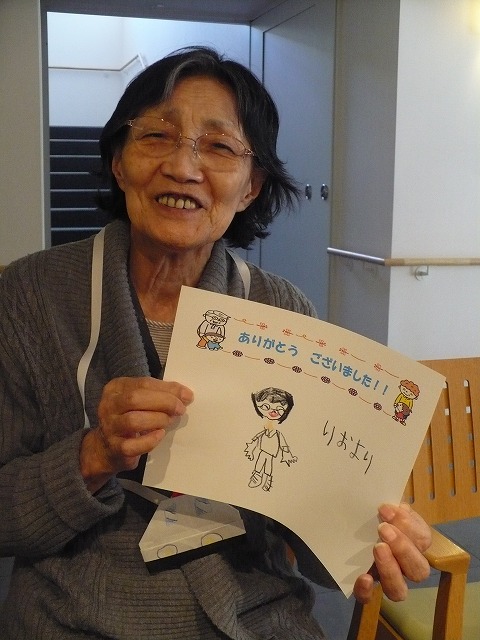 ありがとう ございました!!
りおより